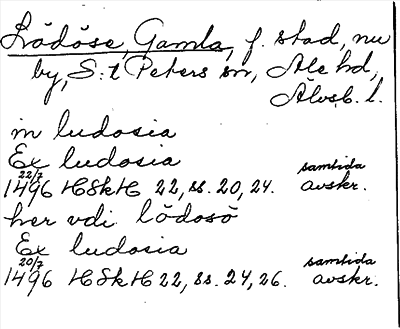 Lödöse, Gamla, f. stad, nu
by, S:t Peters sn, Ale hd,
Älvsb. l.
in ludosia
Ex ludosia
22/7 samtida
1496 HSkH 22, ss. 20, 24. avskr.
her vdi lödosö
Ex ludosia
20/7 samtida
1496 HSkH 22, ss. 24, 26. avskr.